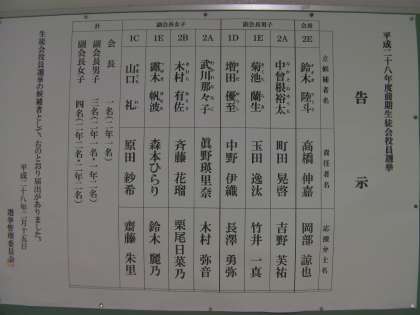 平成二十八年度前期生徒会役員選挙
告示
立候補者名 責任者名 応援弁士名
会長 2E 鈴木陸斗 高橋伸嘉 岡部諒也
副会長男子 2A 中曽根裕太 町田晃啓 吉野芙祐
1E 菊池蘭生 玉田逸汰 竹井一真
1D 増田優至 中野伊織 長澤勇弥
副会長女子 2A 武川那々子 眞野瑛里奈 木村弥音
2B 木村有佐 斉藤花瑠 栗尾日菜乃
1E 鏑木帆波 森本ひらり 鈴木麗乃
1C 山口礼 原田紗希 齋藤朱里
計
会長 一名(二年一名)
副会長男子 三名(二年一名・一年二名)
副会長女子 四名(二年二名・一年二名)
生徒会役員選挙の候補者として、右のとおり届出がありました。
平成二十八年二月十五日
選挙管理委員会